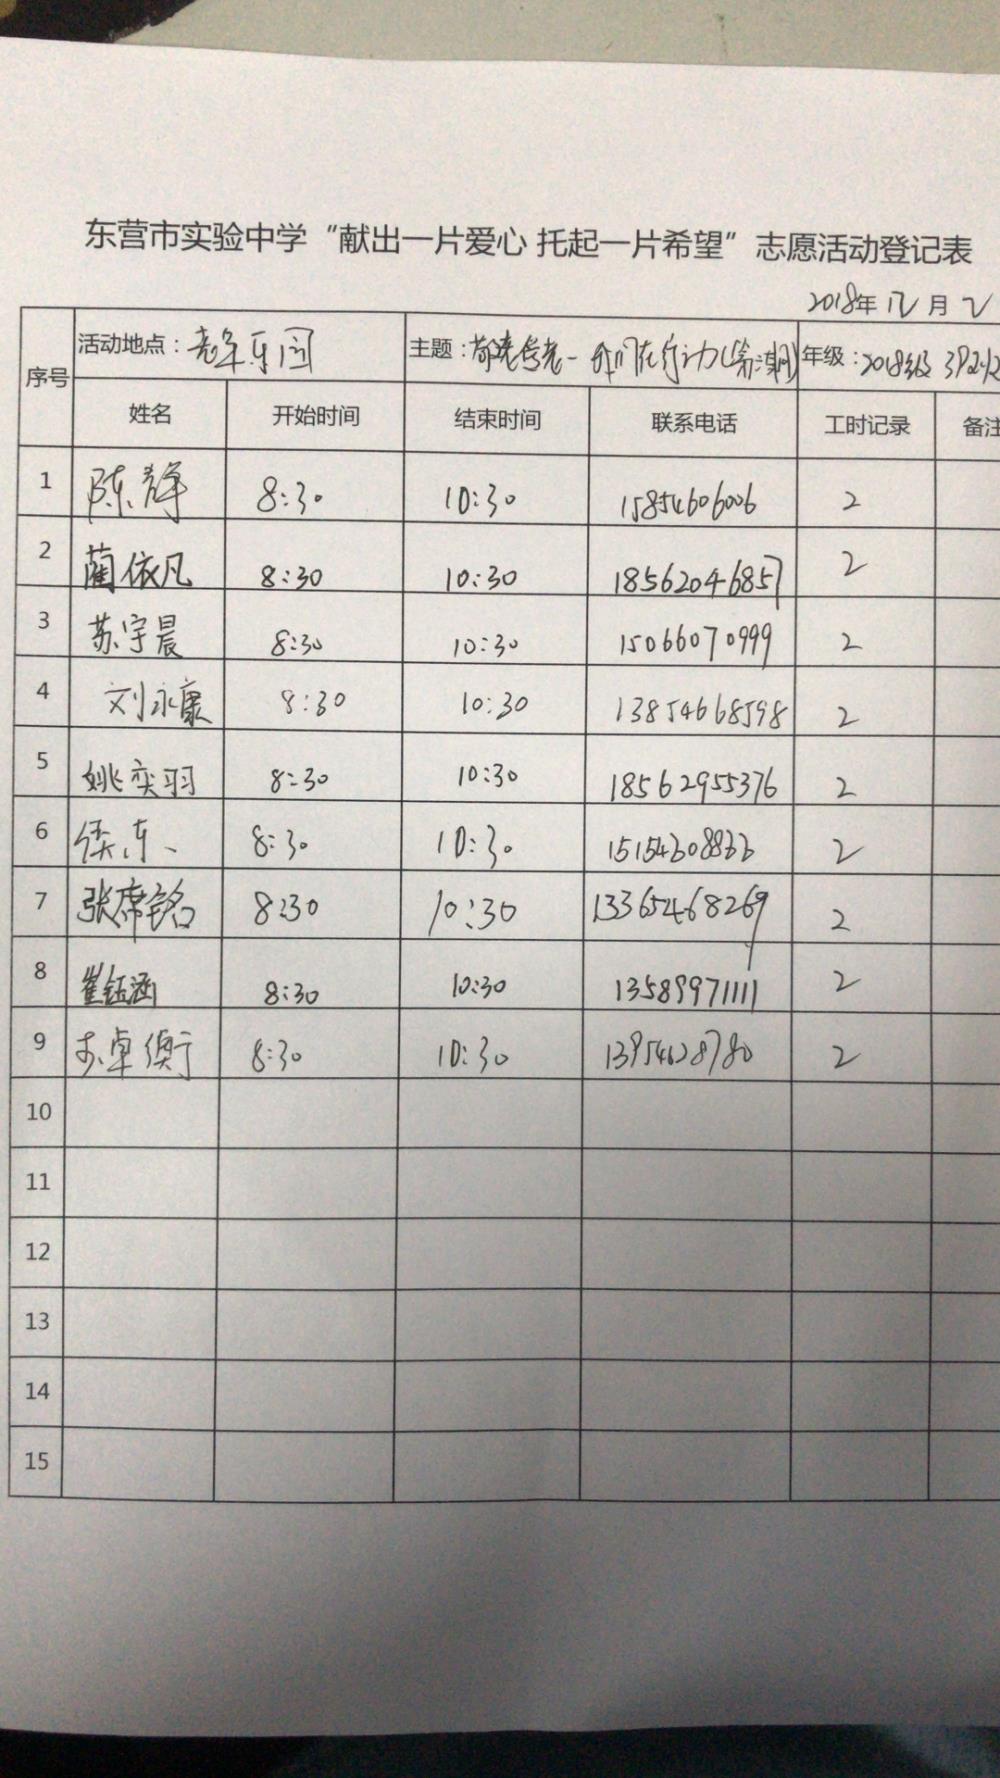 东营市实验中学“献出一片爱心 托起一片希望”志愿活动登记表
2018年12月2
序号 活动地点：老年乐园 主题：敬老爱老一我们在行动(第二期) 年级：2018级
姓名 开始时间 结束时间 联系电话 工时记录 备注
1 陈静 8:30 10:30 15854606006 2
2 蔺依凡 8:30 10:30 18562046857 2
3 苏宇晨 8:30 10:30 15066070999 2
4 刘永康 8:30 10:30 13854668598 2
5 姚奕羽 8:30 10:30 18562955376 2
6 8:30 10:30 2
7 张席铭 8:30 10:30 13365468269 2
8 崔钰涵 8:30 10:30 13589971111 2
9 卓衡 8:30 10:30 13954628780 2
10
11
12
13
14
15